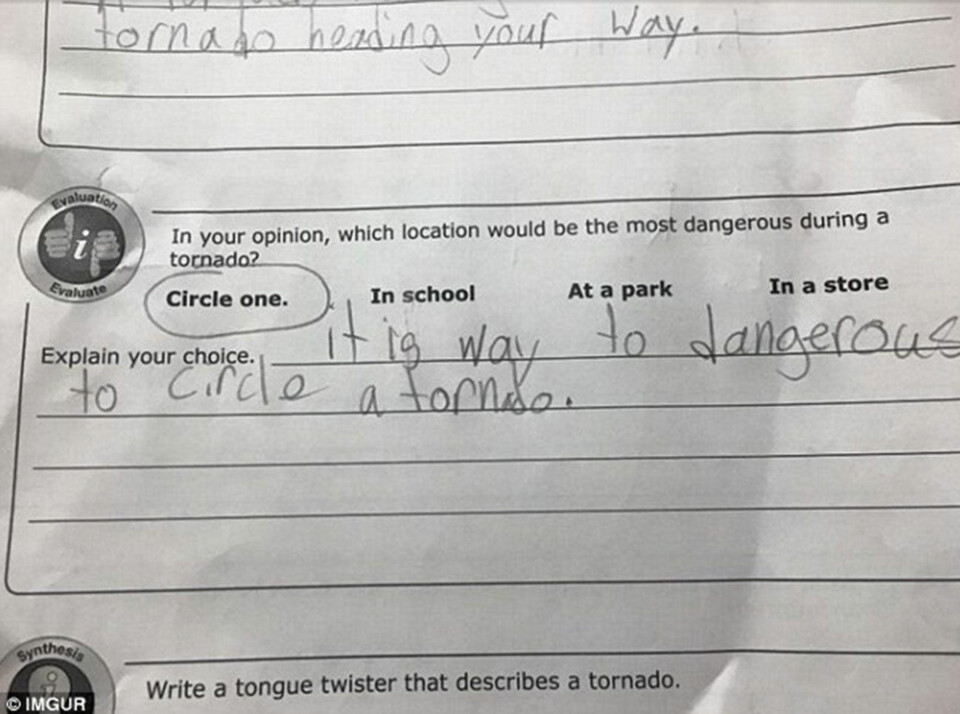 tornado heading your way.
Evaluation
i
Evaluate
In your opinion, which location would be the most dangerous during a
tornado?
Circle one. In school At a park In a store
Explain your choice. it is way to dangerous
to circle a torndo.
Synthesis
i
Write a tongue twister that describes a tornado.
© IMGUR